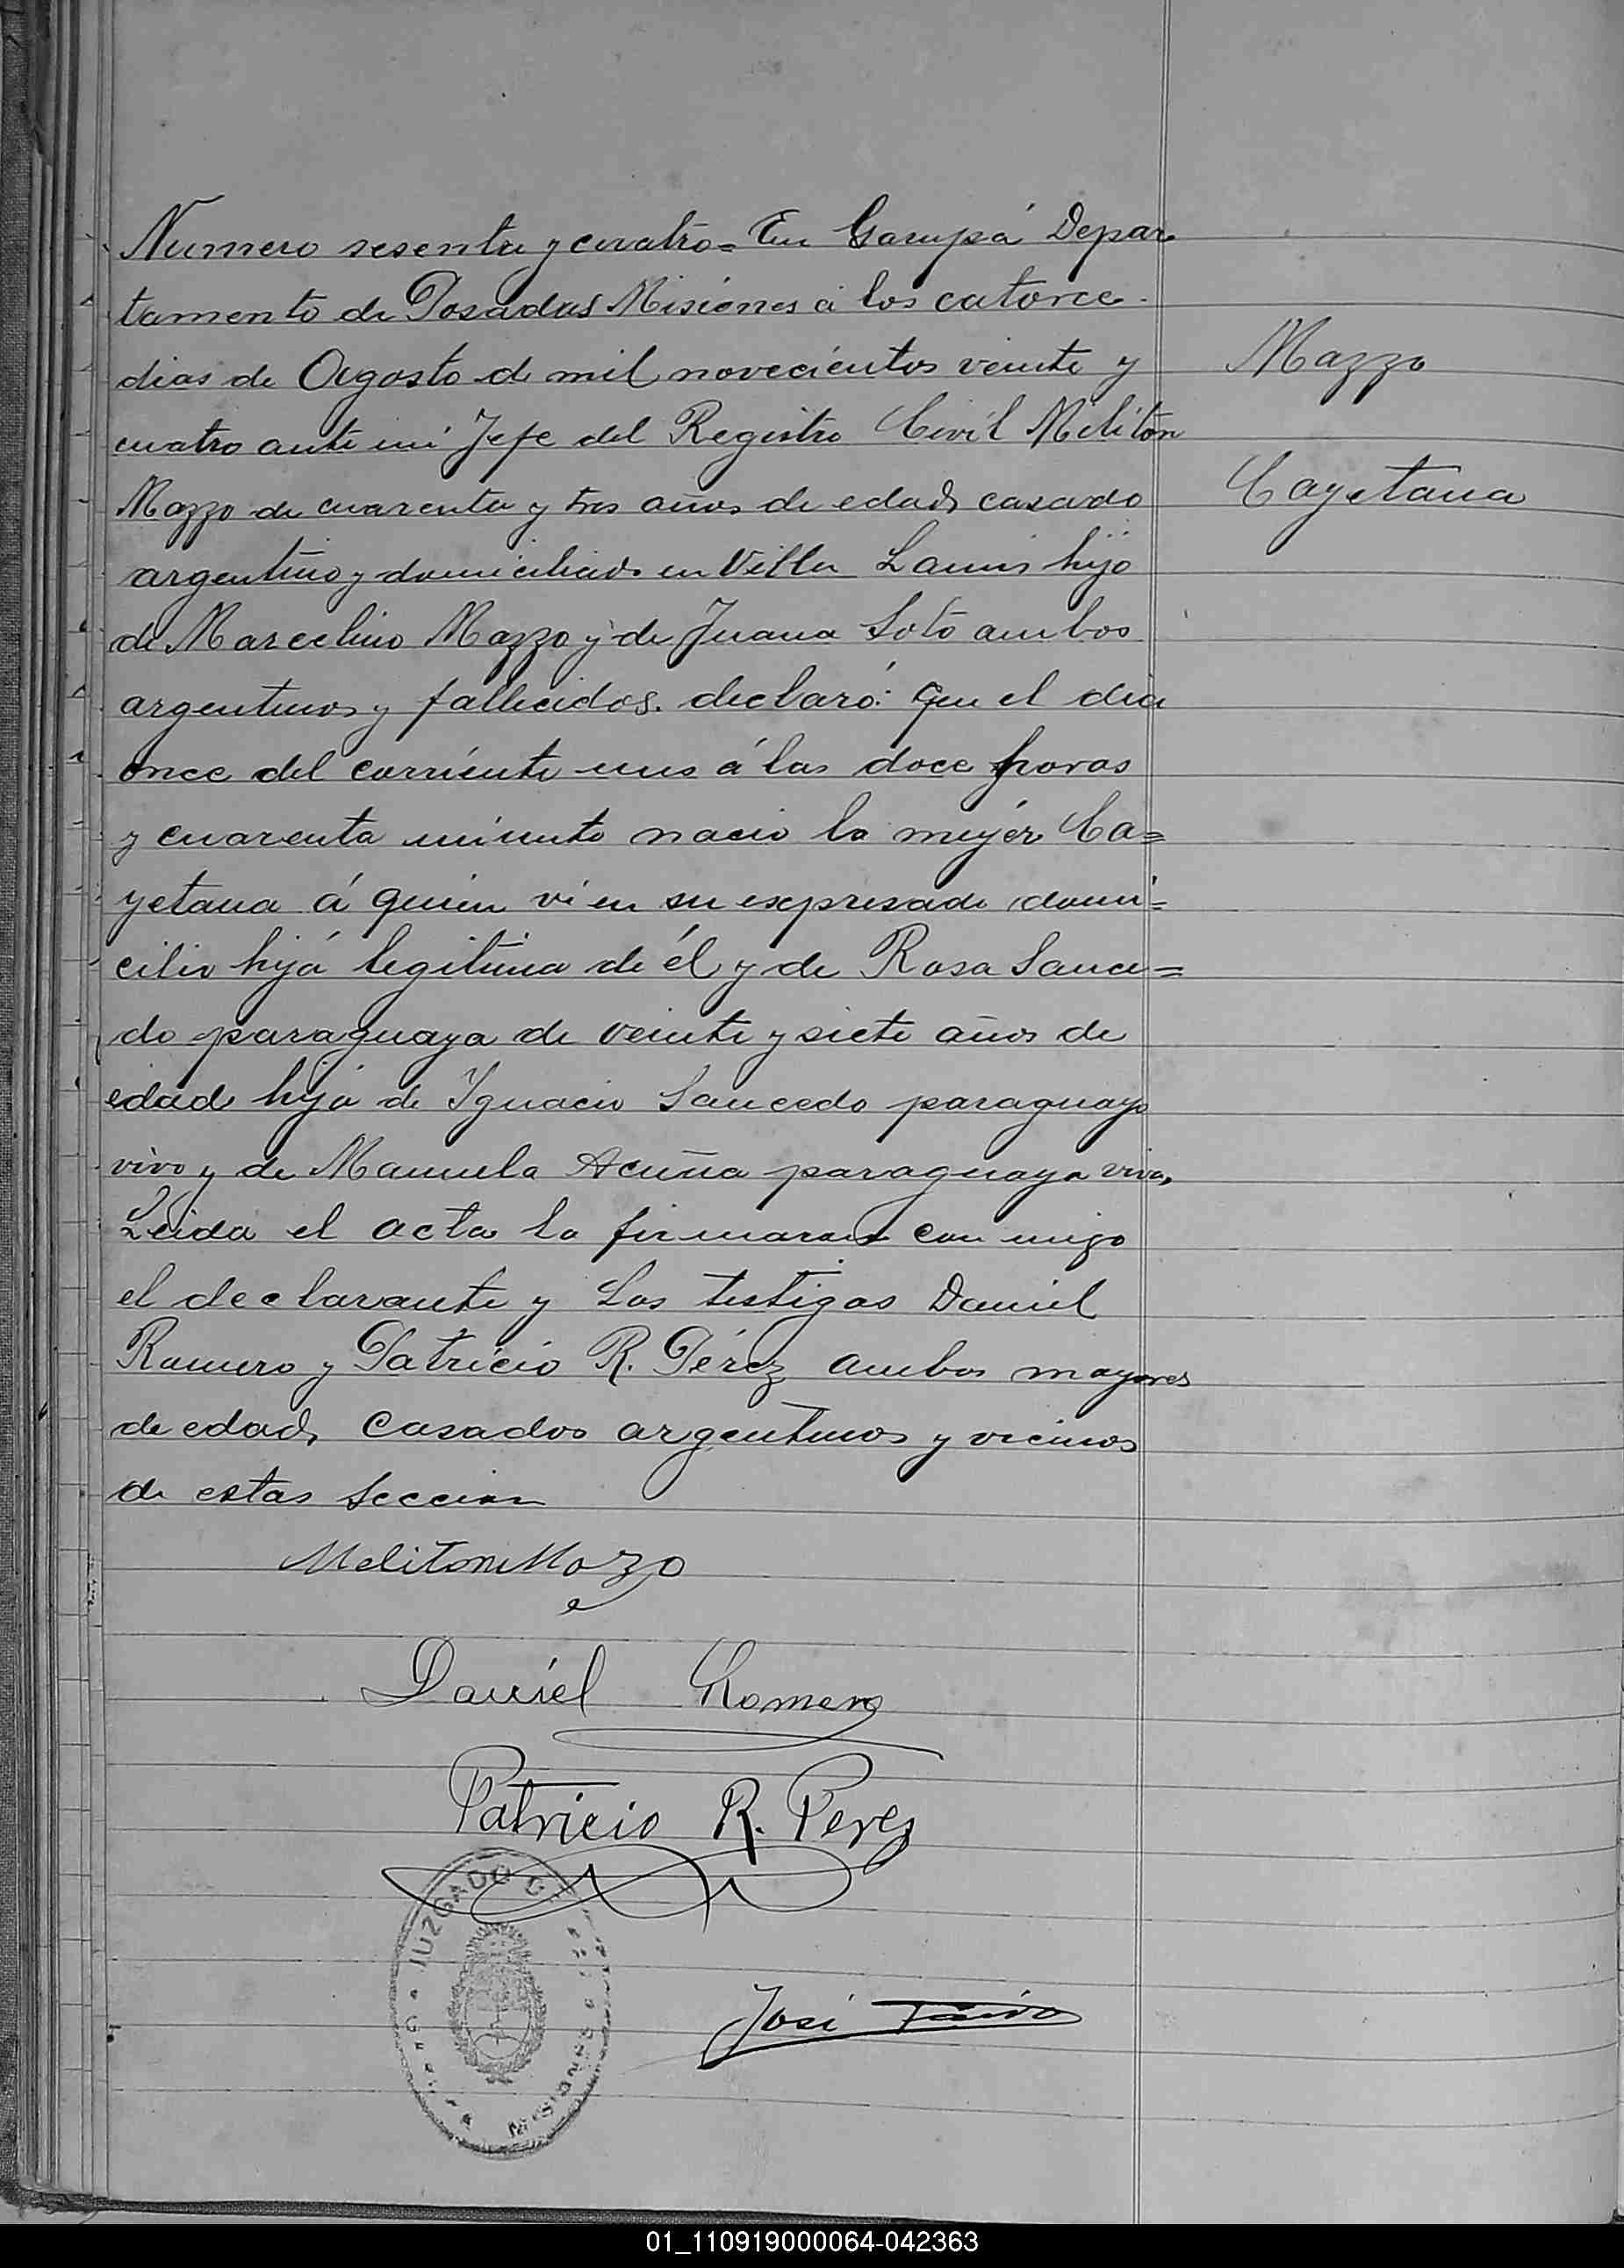 Numero sesenta y cuatro= En Garupá Depar
tamento de Posadas Misiones á los catorce
dias de Agosto de mil novecientos veinte y
Mazzo
cuatro ante mi Jefe del Registro Civil Melitón
Mazzo de cuarenta y tres años de edad, casado
Cayetana
argentino y domiciliado en Villa Lanús hijo
de Marcelino Mazzo y de Juana Soto ambos
argentinos y fallecidos. declaró: Que el dia
once del corriente mes á las doce horas
y cuarenta minuto nacio la mujer Ca=
yetana á quien vi en su expresado domi=
cilio hija legitima de él y de Rosa Sauce=
do paraguaya de veinte y siete años de
edad hija de Ygnacio Saucedo paraguayo
vivo y de Manuela Acuña paraguaya viva,
Leida el acta la firmaron con migo
el declarante y Los testigos Daniel
Romero y Patricio R. Pérez ambos mayores
de edad, casados argentinos y vecinos
de estas Seccion
Meliton Mozo
Daniel Romero
Patricio R. Perez
JUZGADO D
MISIONES
José
01_110919000064-042363